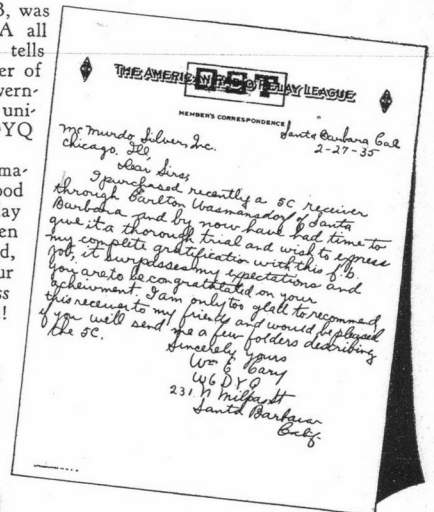 3, was
A all
tells
er of
vern-
uni-
YQ
ma-
ood
lay
en
d,
ur
ss
!
THE AMERICAN RADIO RELAY LEAGUE
QST
MEMBER'S CORRESPONDENCE
Santa Barbara Cal
2-27-35
McMurdo Silver Inc.
Chicago, Ill,
Dear Sirs,
I purchased recently a 5C receiver
through Carlton Wasmansdorf of Santa
Barbara and by now have had time to
give it a thorough trial and wish to express
my complete gratification with this f.b.
job, it surpasses my expectations and
you are to be congratulated on your
achievment. I am only too glad to recommend
this receiver to my friends and would be pleased
if you will send me a few folders describing
the 5C.
Sincerely yours
Wm E Cary
W6DYQ
231 N Milpas St
Santa Barbara
Calif.